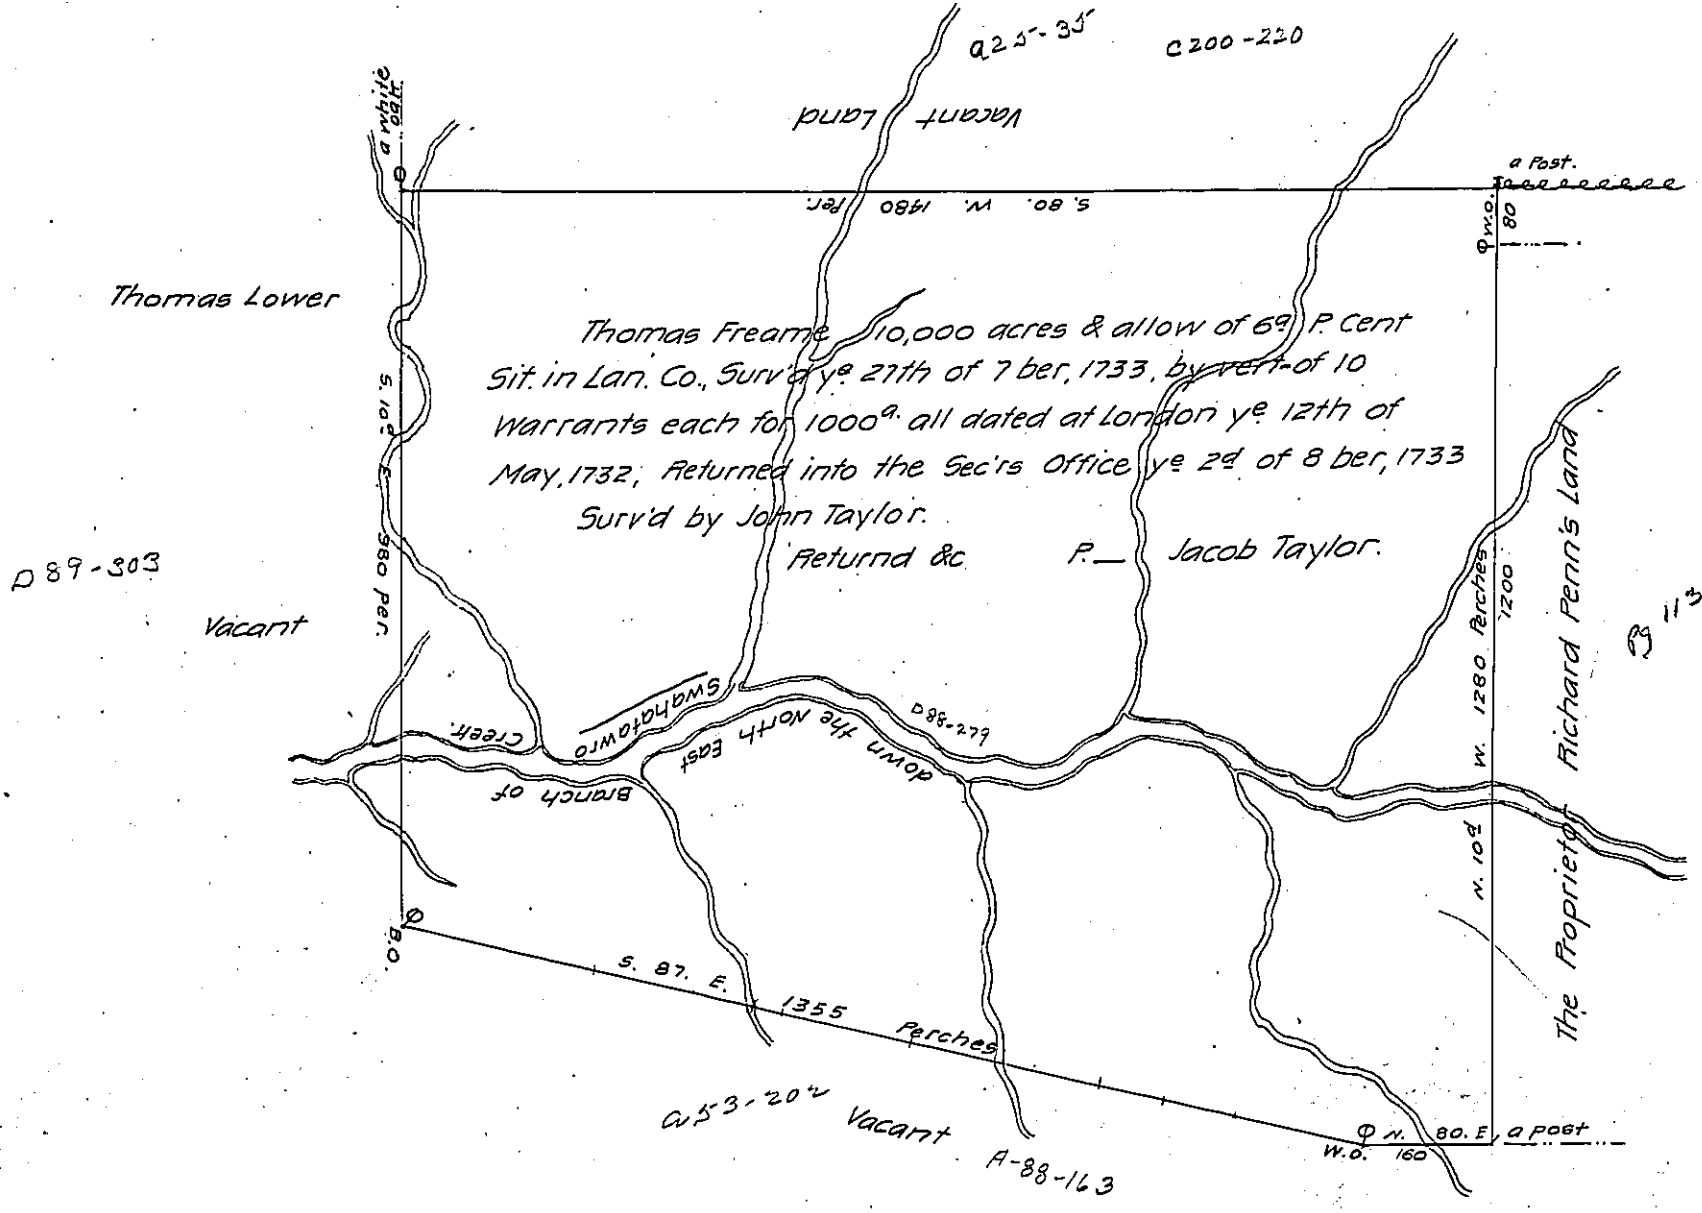 a25-35
C200-220
a White
Oak
Vacant Land
a Post.
S. 80. W. 1480 Per.
W.O.
80
Thomas Lower
Thomas Freame 10,000 acres & allow of 6a P. Cent
Sit. in Lan. Co., Surv'd ye 27th of 7 ber, 1733, by vert of 10
Warrants each for 1000a. all dated at London ye 12th of
May, 1732; Returned into the Sec'rs Office ye 2d of 8 ber, 1733
Surv'd by John Taylor.
Returnd &c P. Jacob Taylor.
S. 10d E. 980 per.
D89-303
Vacant
N. 10d W. 1280 Perches
1200
The Proprietor Richard Penn's Land
Pg 113
down the North East
Branch of
Swahatawro
Creek.
D88-279
B.O.
S. 87. E. 1355 Perches
a53-202
Vacant
A-88-163
W.O.
N. 80. E. a post
160